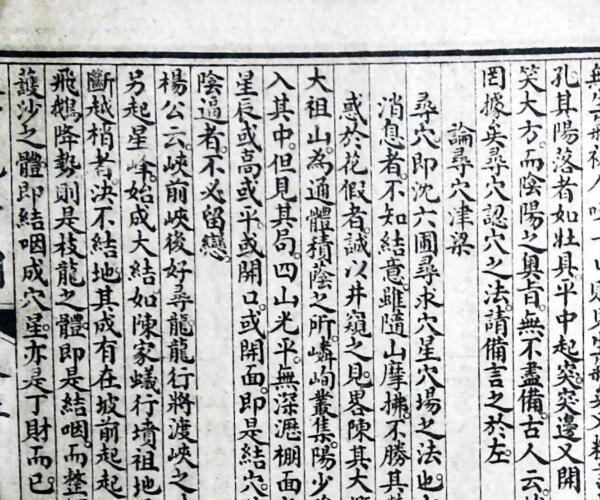 孔其陽落者如壯具。平中起突。突邊又開
笑大方。而陰陽之奧旨。無不盡備。古人云
罔據妄尋穴認穴之法。請備言之於左
論尋穴津梁
尋穴即沈六圃尋求穴星穴場之法也。
消息者。不知結意。雖隨山摩拂。不勝其
惑於花假者。誠以井窺之見。畧陳其大
大祖山。為通體積蔭之所。嶙峋叢集。陽少
入其中。但見其局。四山光平。無深瀝棚面
星辰或高或平。或開口。或開面。即是結穴
陰逼者。不必留戀。
楊公云。峽前峽後好尋龍。龍行將渡峽之
另起星峰。始成大結。如陳家蟻行墳祖地
斷越梢者。決不結地。其成有在坡前起起
飛鵝降勢則是枝龍之體。即是結咽。而整
護沙之體。即結咽成穴星。亦是丁財而已。